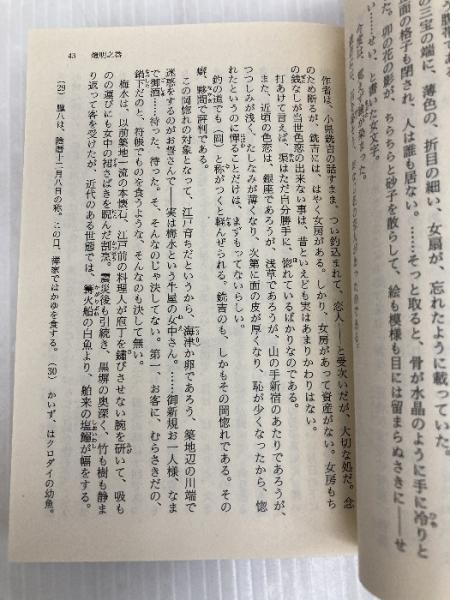 腹帯である
卯の花の影が、ちらちらと砂子を散らして、絵も模様も目には留まらぬさきに――せ
面の格子も閉され、人は誰も居ない。……そっと取ると、骨が水晶のように手に冷りと
の三宝の端に、薄色の、折目の細い、女扇が、忘れたように載っていた。
い……せい、と書いた女文字。
43 燈明之巻
作者は、小県銑吉の話すまま、つい釣込まれて、恋人――と受次いだが、大切な処だ。念
のため断るが、銑吉には、はやく女房がある。しかり、女房があって資産がない。女房もち
の銭なしが当世色恋の出来ない事は、昔といえども実はあまりかわりはない。
打あけて言えば、渠はただ自分勝手に、惚れているばかりなのである。
また、近頃の色恋は、銀座であろうが、浅草であろうが、山の手新宿のあたりであろうが、
つつしみが浅く、たしなみが薄くなり、次第に面の皮が厚くなり、恥が少くなったから、惚
れたというのに憚ることだけは、まずもってないらしい。
釣の道でも(岡)と称がつくと軽んぜられる。銑吉のも、しかもその岡惚れである。その
癖、夥間で評判である。
この岡惚れの対象となって、江戸育ちだというから、海津か卵であろう、築地辺の川端で
迷惑をするのがお誓さんで――実は梅水という牛屋の女中さん。……御新規お一人様、なま
で御酒……待った、待った。そ、そんなのじゃ決してない。第一、お客に、むらさきだの、
鍋下だのと、符帳でものを食うような、そんなのも決して無い。
梅水は、以前築地一流の本懐石、江戸前の料理人が庖丁を錆びさせない腕を研いて、吸も
のの運びにも女中の裙さばきを睨んだ割烹。震災後も引続き、黒塀の奥深く、竹も樹も静ま
り返って客を受けたが、近代のある世態では、篝火船の白魚より、舶来の塩鰯が幅をする。
(29) 臘八は、陰暦十二月八日の称。この日、禅家ではかゆを食する。(30) かいず、はクロダイの幼魚。